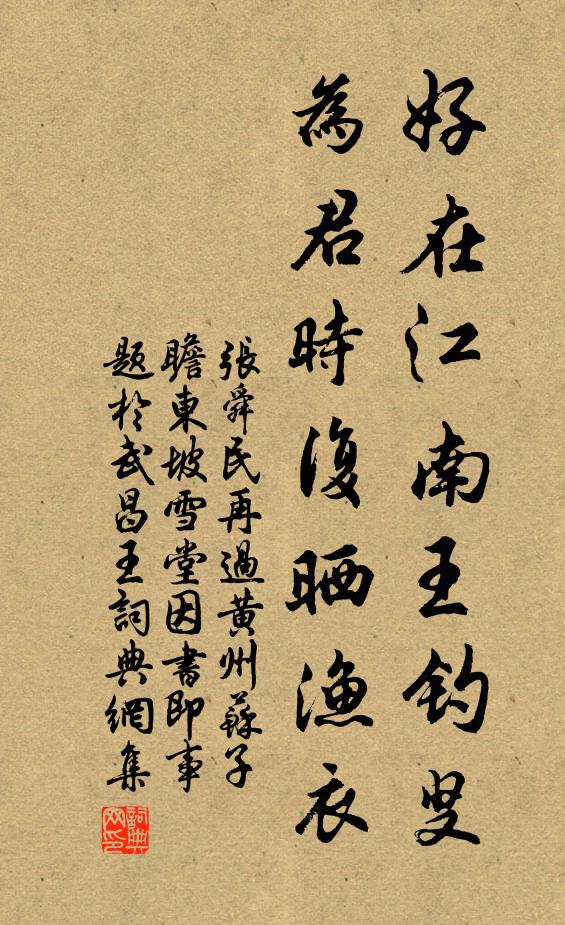 好在江南王钓叟
為君時復晒漁衣
張舜民再過黃州蘇子
瞻東坡雪堂因書即事
題於武昌王詞典網集
詞典网印